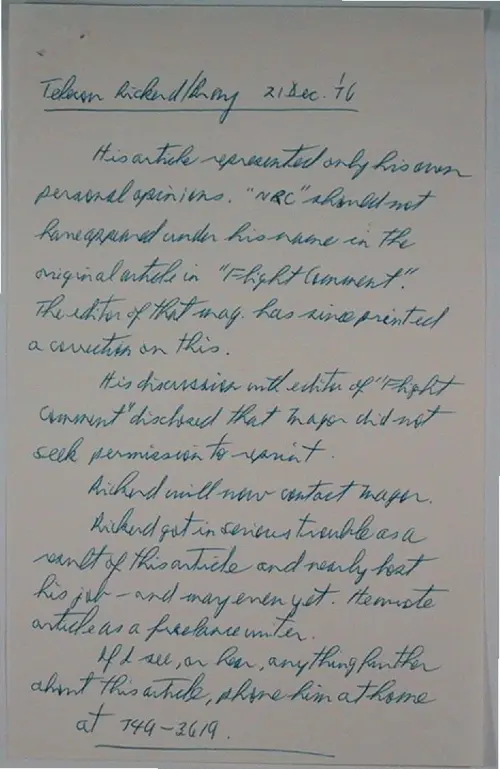 Telecon Rickerd/Arny 21 Dec. '76
His article represented only his own
personal opinions. "NRC" should not
have appeared under his name in the
original article in "Flight Comment".
The editor of that mag. has since printed
a correction on this.
His discussion with editor of "Flight
Comment" disclosed that Magor did not
seek permission to reprint.
Rickerd will now contact Magor.
Rickerd got in serious trouble as a
result of this article and nearly lost
his job - and may even yet. He wrote
article as a freelance writer.
If I see, or hear, anything further
about this article, phone him at home
at 749-3619.